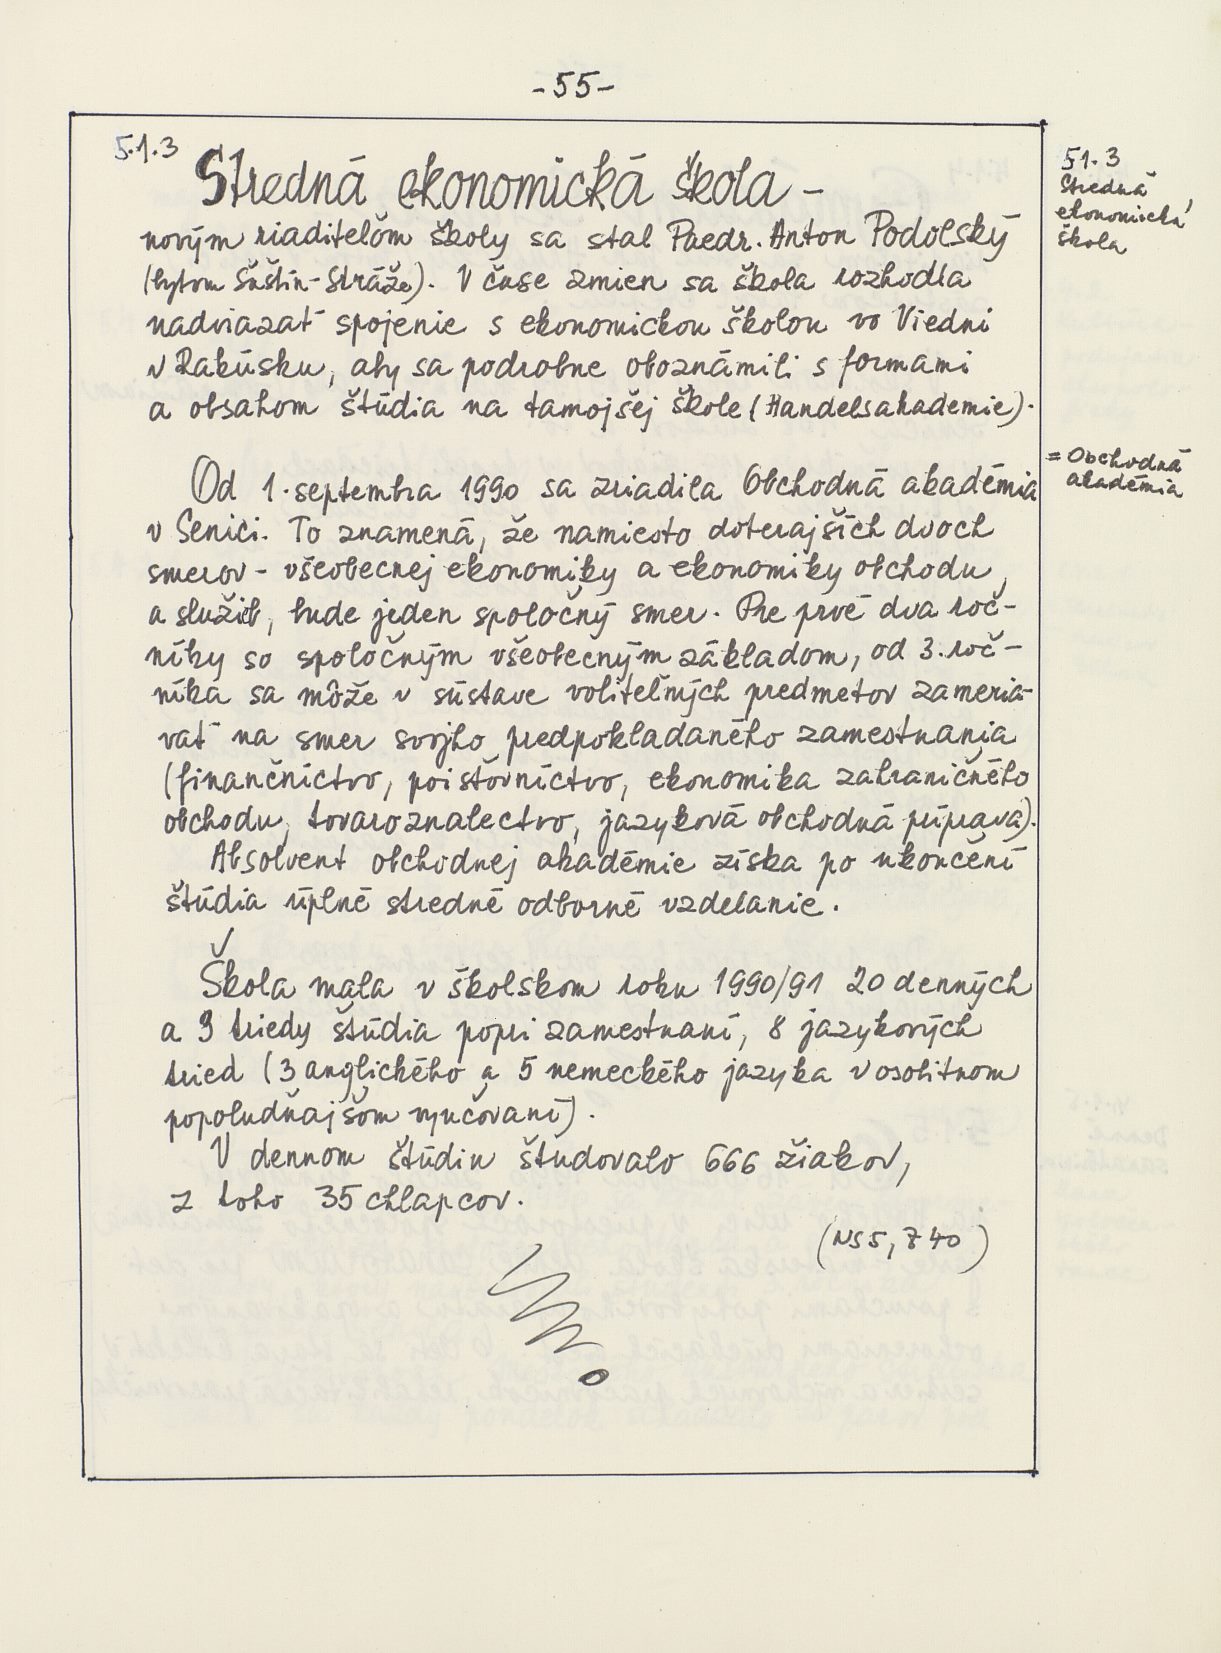 -55-
5.1.3
Stredná ekonomická škola -
novým riaditeľom školy sa stal Paedr. Anton Podolský
(bytom Šaštín-Stráže). V čase zmien sa škola rozhodla
nadviazať spojenie s ekonomickou školou vo Viedni
v Rakúsku, aby sa podrobne oboznámili s formami
a obsahom štúdia na tamojšej škole (Handelsakademie).
Od 1. septembra 1990 sa zriadila Obchodná akadémia
v Senici. To znamená, že namiesto doterajších dvoch
smerov - všeobecnej ekonomiky a ekonomiky obchodu
a služieb, bude jeden spoločný smer. Pre prvé dva roč-
níky so spoločným všeobecným základom, od 3. roč-
níka sa môže v sústave voliteľných predmetov zameria-
vať na smer svojho predpokladaného zamestnania
(finančníctvo, poisťovníctvo, ekonomika zahraničného
obchodu, tovaroznalectvo, jazyková obchodná príprava).
Absolvent obchodnej akadémie získa po ukončení
štúdia úplné stredné odborné vzdelanie.
Škola mala v školskom roku 1990/91 20 denných
a 3 triedy štúdia popri zamestnaní, 8 jazykových
tried (3 anglického a 5 nemeckého jazyka v osobitnom
popoludňajšom vyučovaní).
V dennom štúdiu študovalo 666 žiakov,
z toho 35 chlapcov.
(NS5, Z40)
51.3
Stredná
ekonomická
škola
= Obchodná
akadémia